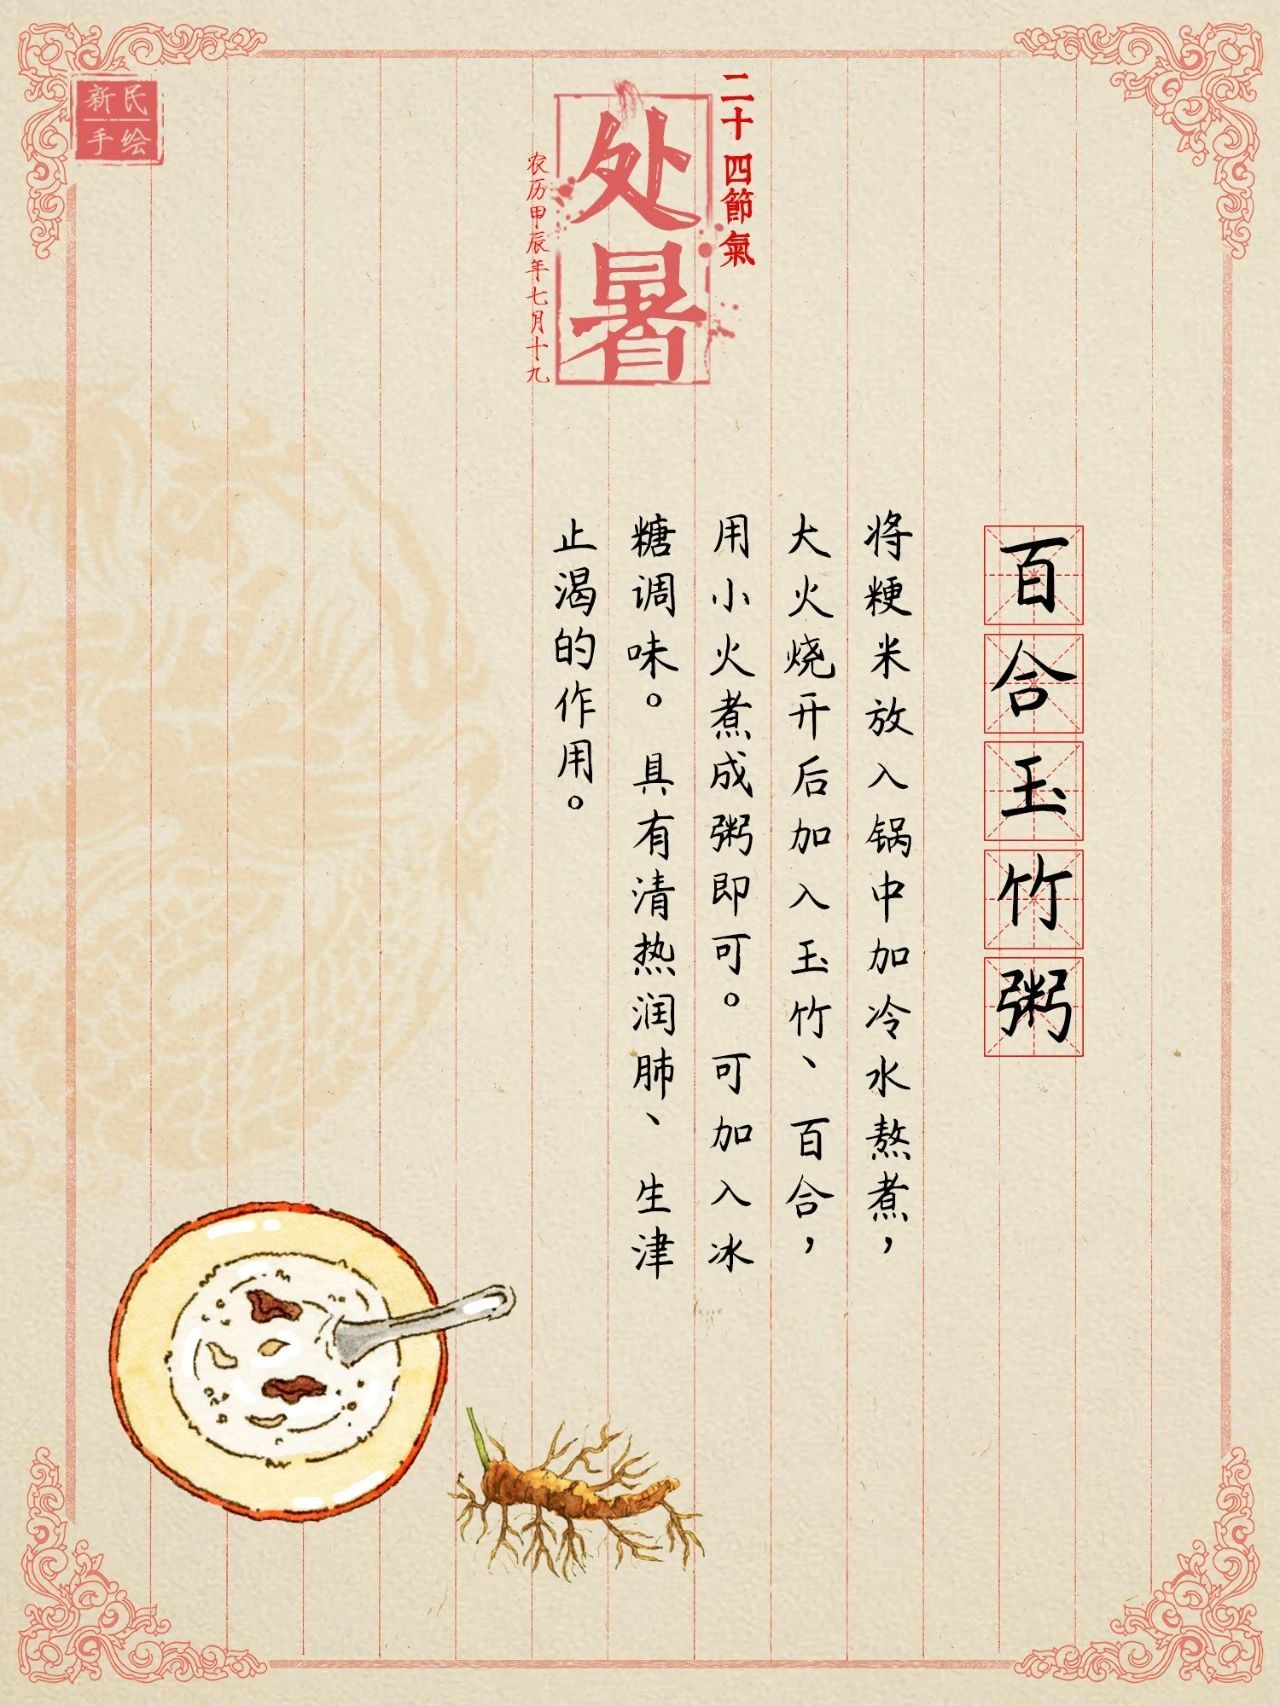 新民
手绘
二十四節氣
处暑
农历甲辰年七月十九
百合玉竹粥
将粳米放入锅中加冷水熬煮，
大火烧开后加入玉竹、百合，
用小火煮成粥即可。可加入冰
糖调味。具有清热润肺、生津
止渴的作用。